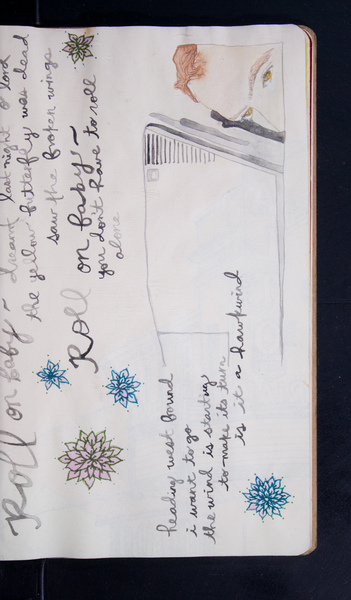 Roll on baby ~ dream last night o lord
the yellow butterfly was dead
saw the broken wings
Roll on baby ~
you don't have to roll
alone
heading west bound
i want to go
the wind is starting
to make its turn
is it a hawkwind